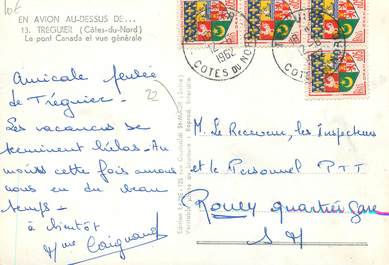 10€
EN AVION AU-DESSUS DE...
13. TREGUIER (Côtes-du-Nord)
Le pont Canada et vue générale
Amicale pensée
de Tréguier.
22
Les vacances se
terminent hélas. Au
moins cette fois avons
nous eu du beau
temps -
à bientôt
Mme
12
1962
COTES DU NORD
M. Le Receveur, les Inspecteurs
et le Personnel PTT
Rouen quartier Gare
S M